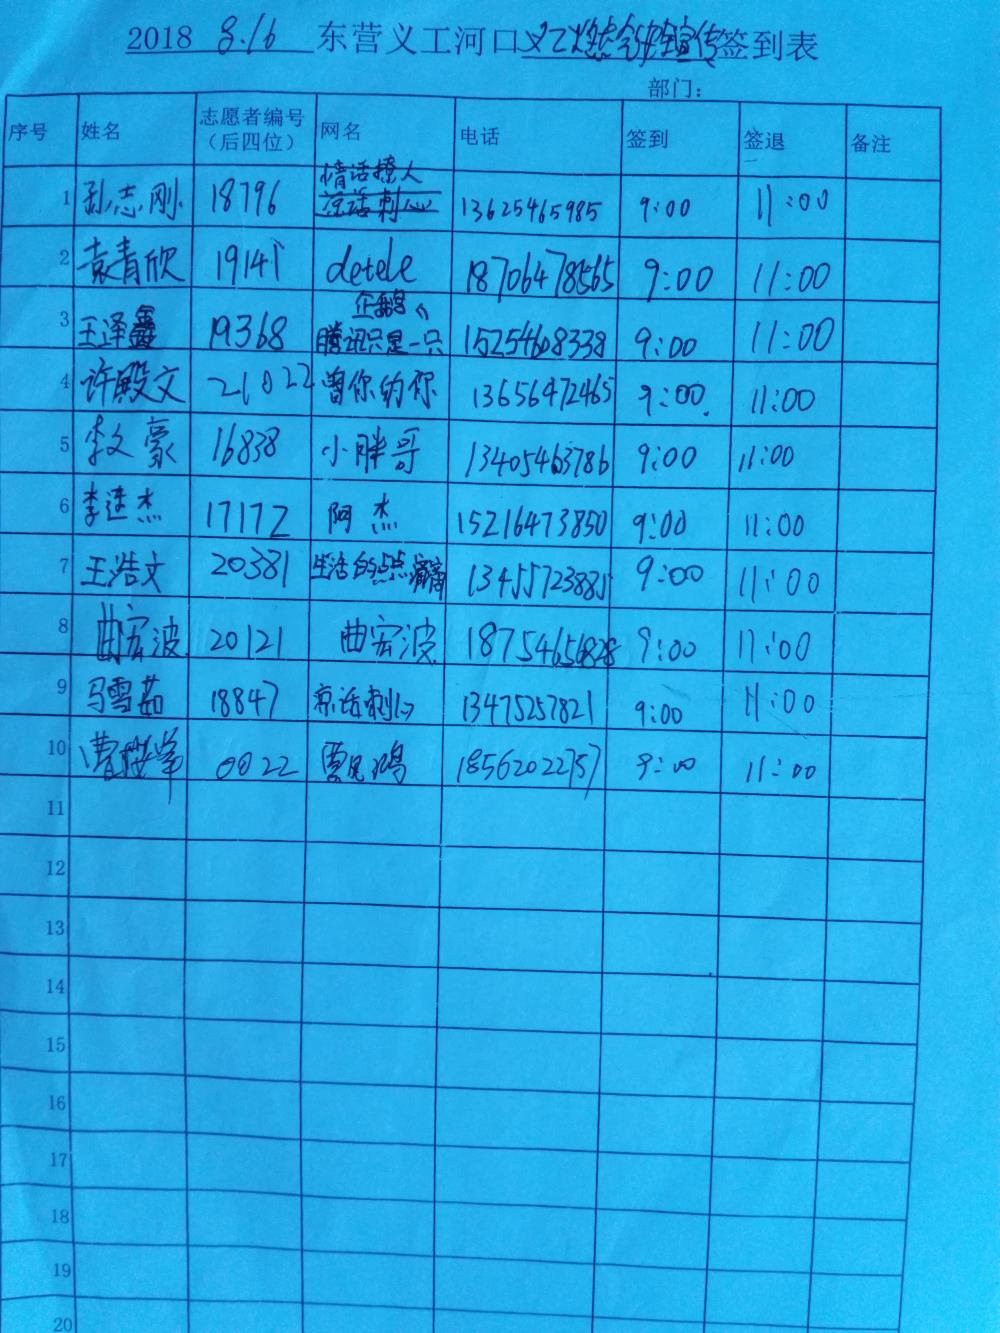 2018 8.16 东营义工河口义工燃气安全宣传签到表
部门：
序号 姓名 志愿者编号（后四位） 网名 电话 签到 签退 备注
1 孙志刚 18796 情话撩人 凉话刺心 13625465985 9:00 11:00
2 袁青欣 19141 detele 18706478565 9:00 11:00
3 王泽鑫 19368 腾讯只是一只企鹅 15254608338 9:00 11:00
4 许殿文 21022 曾你的你 13656472465 9:00 11:00
5 李文豪 16838 小胖哥 13405463786 9:00 11:00
6 李连杰 17172 阿杰 15216473850 9:00 11:00
7 王浩文 20381 生活的点点滴滴 13455723881 9:00 11:00
8 曲宏波 20121 曲宏波 18754656828 9:00 11:00
9 马雪茹 18847 凉话刺心 13475257821 9:00 11:00
10 0022 18562022757 9:00 11:00
11
12
13
14
15
16
17
18
19
20